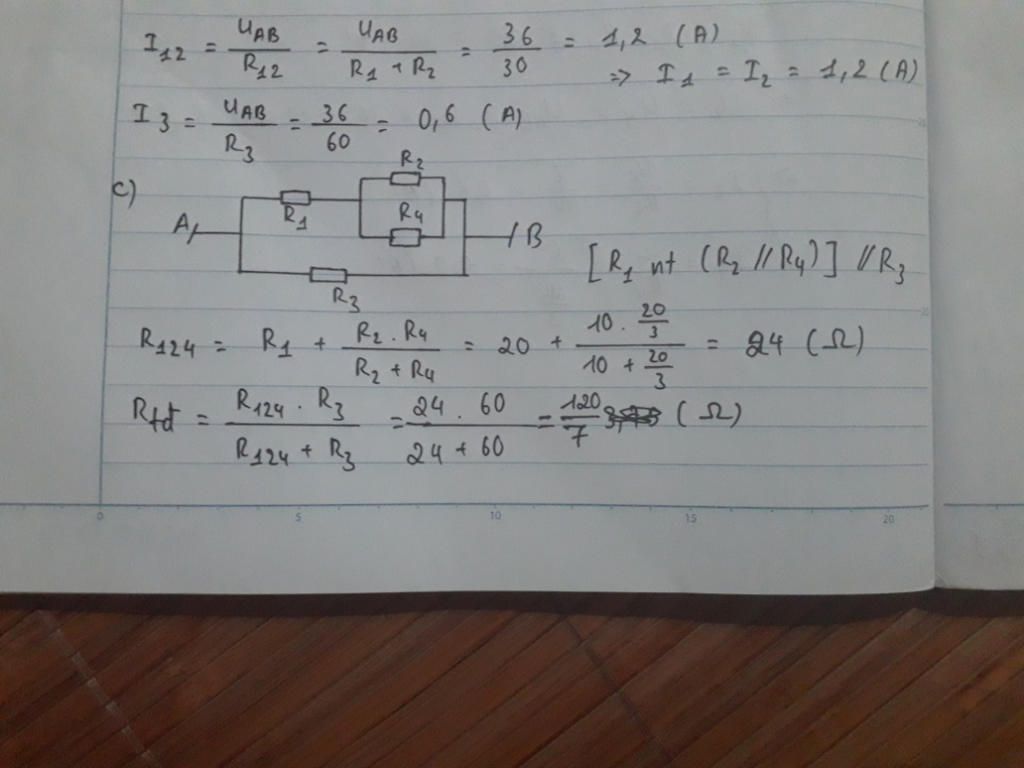 I12 = UAB/R12 = UAB/(R1 + R2) = 36/30 = 1,2 (A)
=> I1 = I2 = 1,2 (A)
I3 = UAB/R3 = 36/60 = 0,6 (A)
c)
R2
R1
R4
A
B
R3
[R1 nt (R2 // R4)] // R3
R124 = R1 + (R2 . R4)/(R2 + R4) = 20 + (10 . 20/3)/(10 + 20/3) = 24 (Ω)
Rtđ = (R124 . R3)/(R124 + R3) = (24 . 60)/(24 + 60) = 120/7 (Ω)
0 5 10 15 20